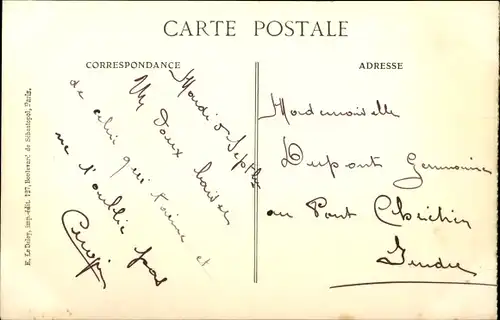 CARTE POSTALE
CORRESPONDANCE
ADRESSE
E. Le Deley, imp.-édit. 127, Boulevard de Sébastopol, Paris.
Mardi 5 Septbre
Un doux baiser
de celui qui t'aime et
ne t'oublie pas
Mademoiselle
Dupont Germaine
au Pont Chrétien
Indre